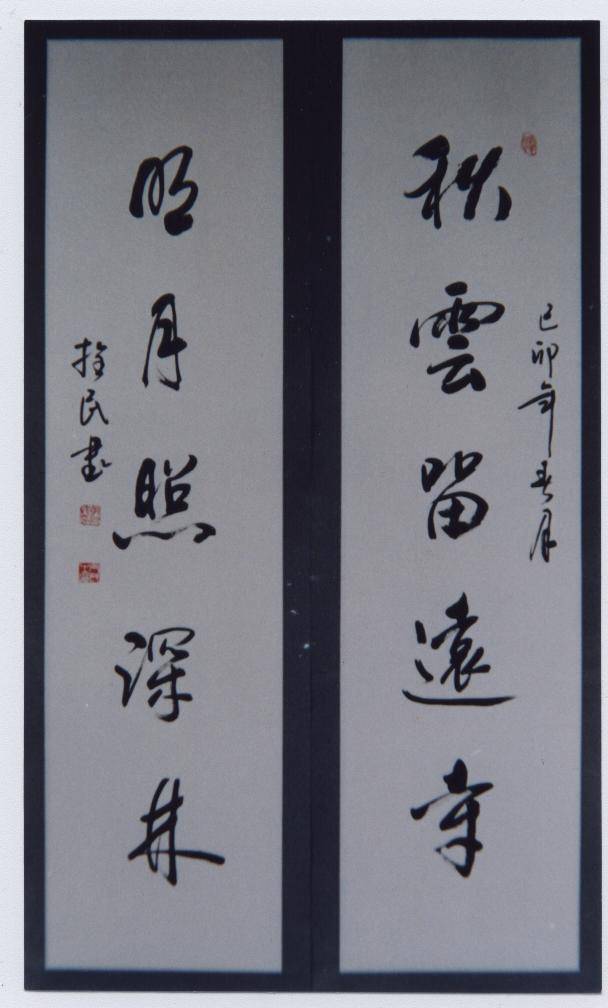 己卯年春月
秋雲留遠寺
明月照深林
拴民書